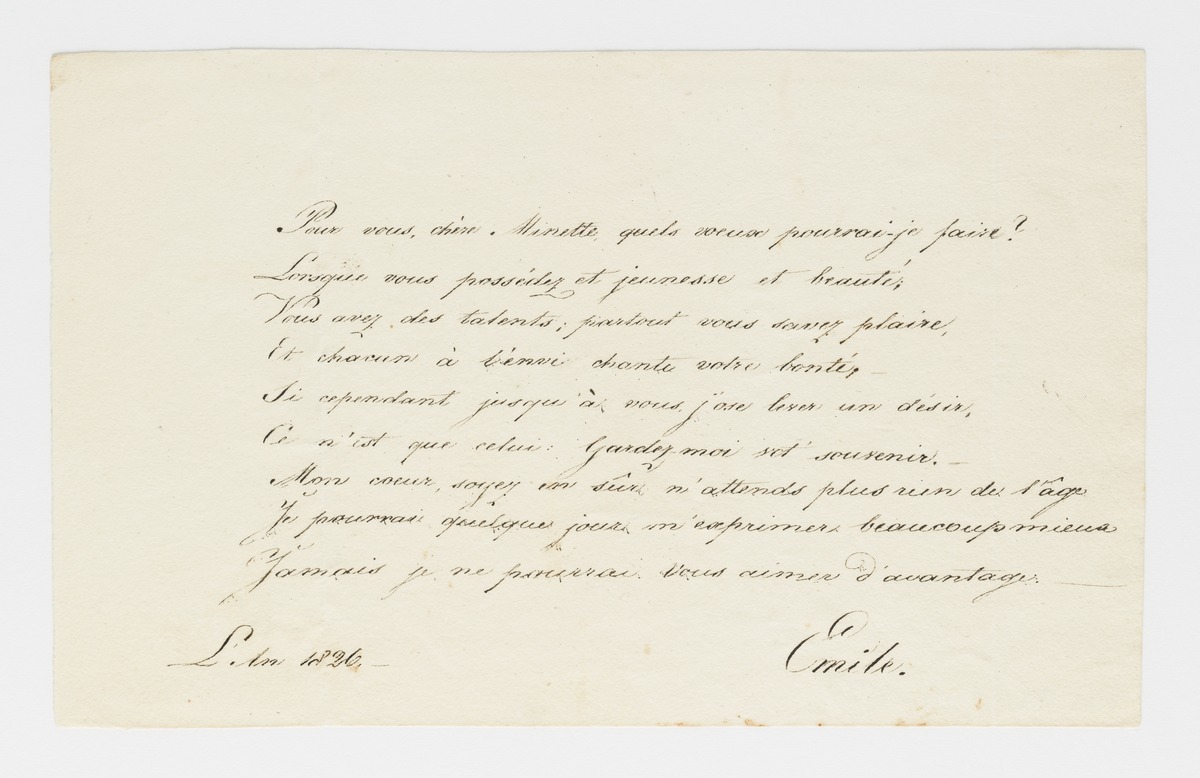 Pour vous, chère Minette, quels voeux pourrai-je faire?
Lorsque vous possédez et jeunesse et beauté;
Vous avez des talents; partout vous savez plaire,
Et chacun à l'envi chante votre bonté, —
Si cependant jusqu'à vous, j'ose lever un désir,
Ce n'est que celui: Gardez-moi vot' souvenir. —
Mon coeur, soyez en sûre n'attends plus rien de l'âge
Je pourrai quelque jour m'exprimer beaucoup mieux
Jamais je ne pourrai vous aimer d'avantage. —
L'An 1826. —
Emile.